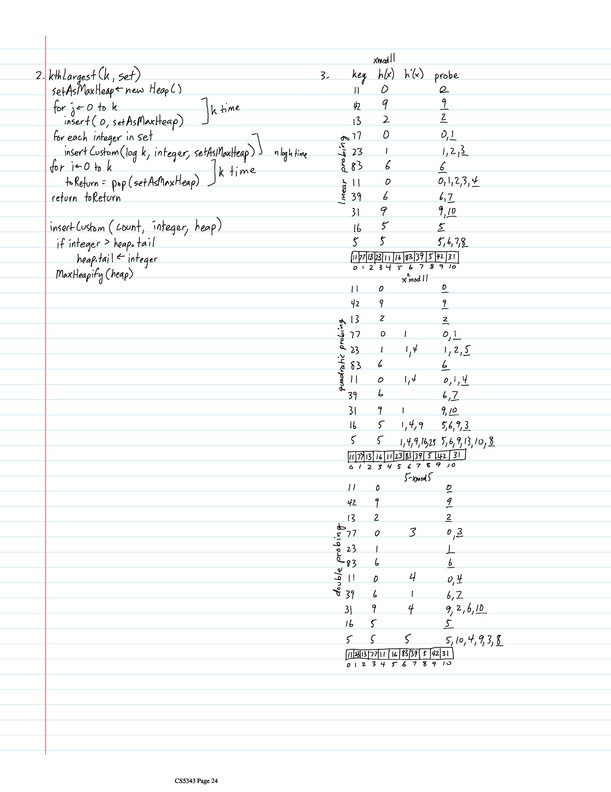 2. kthLargest(k, set)
setAsMaxHeap ← new Heap()
for j ← 0 to k
insert(0, setAsMaxHeap)
] k time
for each integer in set
insertCustom(log k, integer, setAsMaxHeap)
] n log k time
for i ← 0 to k
toReturn = pop(setAsMaxHeap)
] k time
return toReturn
insertCustom(count, integer, heap)
if integer > heap.tail
heap.tail ← integer
MaxHeapify(heap)
xmod11
3. key h(x) h'(x) probe
linear probing
11 0 0
42 9 9
13 2 2
77 0 0,1
23 1 1,2,3
83 6 6
11 0 0,1,2,3,4
39 6 6,7
31 9 9,10
16 5 5
5 5 5,6,7,8
11 77 13 23 11 16 83 39 5 42 31
0 1 2 3 4 5 6 7 8 9 10
x²mod11
quadratic probing
11 0 0
42 9 9
13 2 2
77 0 1 0,1
23 1 1,4 1,2,5
83 6 6
11 0 1,4 0,1,4
39 6 6,7
31 9 1 9,10
16 5 1,4,9 5,6,9,3
5 5 1,4,9,16,25 5,6,9,13,10,8
11 77 13 16 11 23 83 39 5 42 31
0 1 2 3 4 5 6 7 8 9 10
5-xmod5
double probing
11 0 0
42 9 9
13 2 2
77 0 3 0,3
23 1 1
83 6 6
11 0 4 0,4
39 6 1 6,7
31 9 4 9,2,6,10
16 5 5
5 5 5 5,10,4,9,3,8
11 23 13 77 11 16 83 39 5 42 31
0 1 2 3 4 5 6 7 8 9 10
CS5343 Page 24